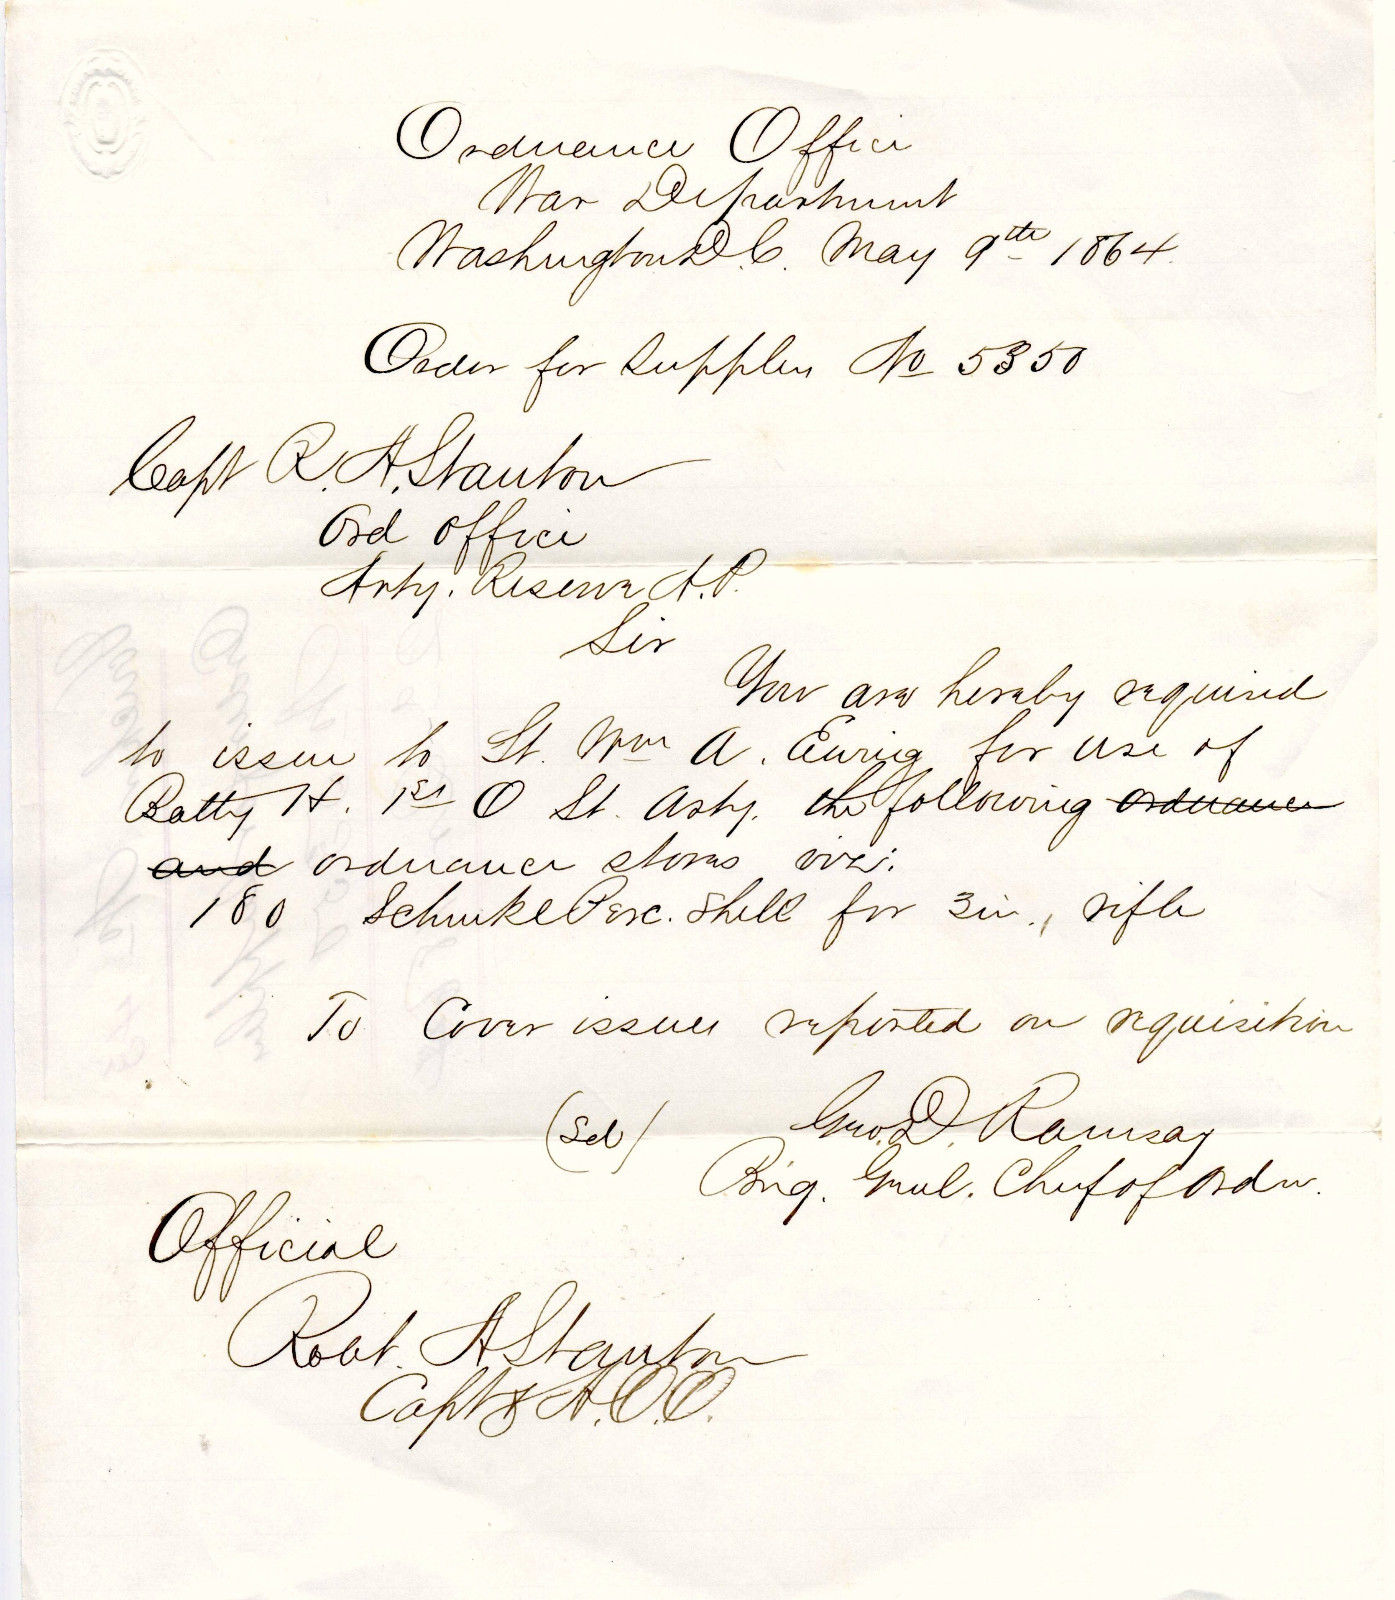 Ordnance Office
War Department
Washington D.C. May 9th 1864.
Order for Supplies No 5350
Capt R. A. Stanton
Ord office
Arty. Reserve A.P.
Sir
You are hereby required
to issue to Lt. Wm A. Ewing for use of
Batty H. 1st O Lt. Arty. the following ordnance
and ordnance stores viz:
180 Schenkle Perc. Shell for 3 in., rifle
To Cover issues reported on requisition
(Sd) Geo. D. Ramsay
Brig. Genl. Chief of Ordn.
Official
Robt. A Stanton
Capt & A.O.O.